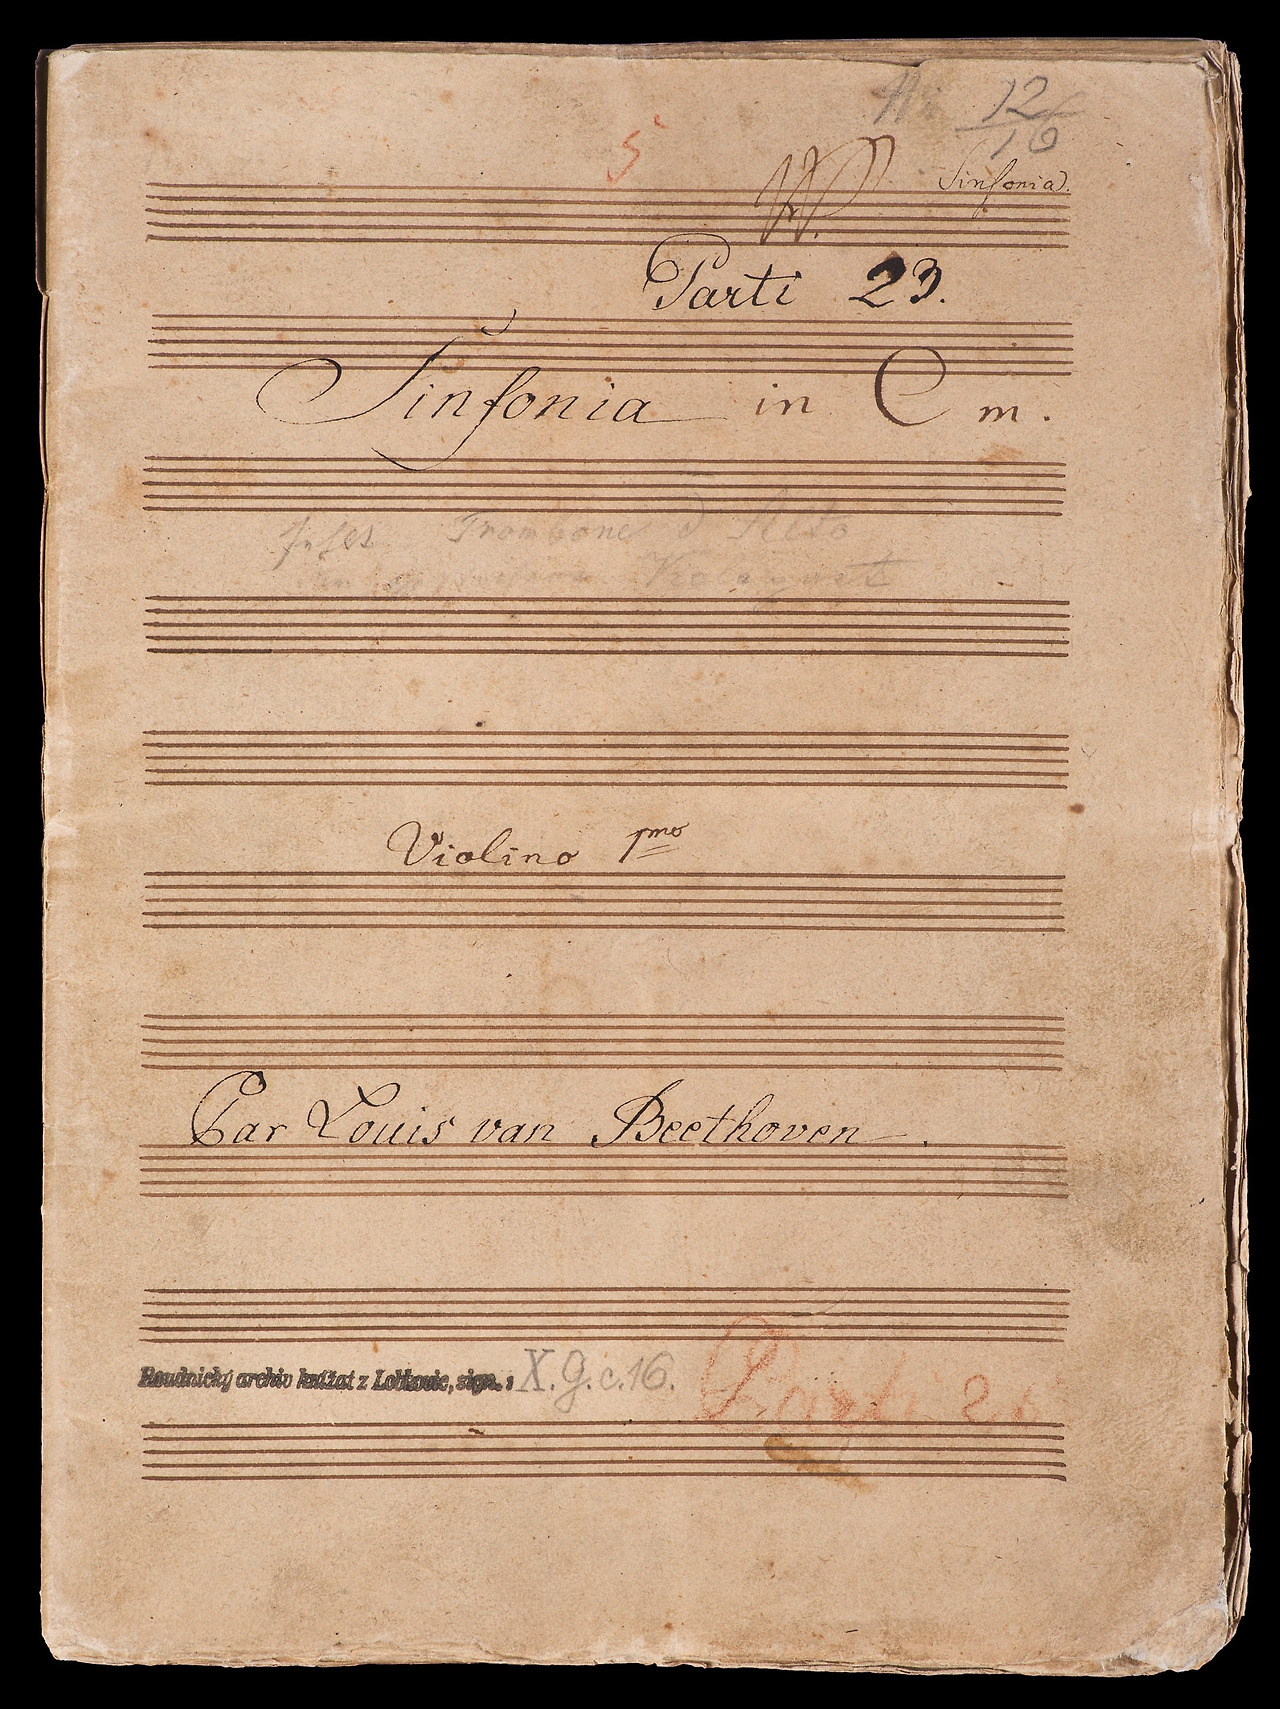 12
16
5
Sinfonia.
Parti 23.
Sinfonia in C m.
Trombone d Alto
Violino 1mo
Par Louis van Beethoven.
Roudnický archiv knížat z Lobkovic, sign.: X.G.c.16.
Parti